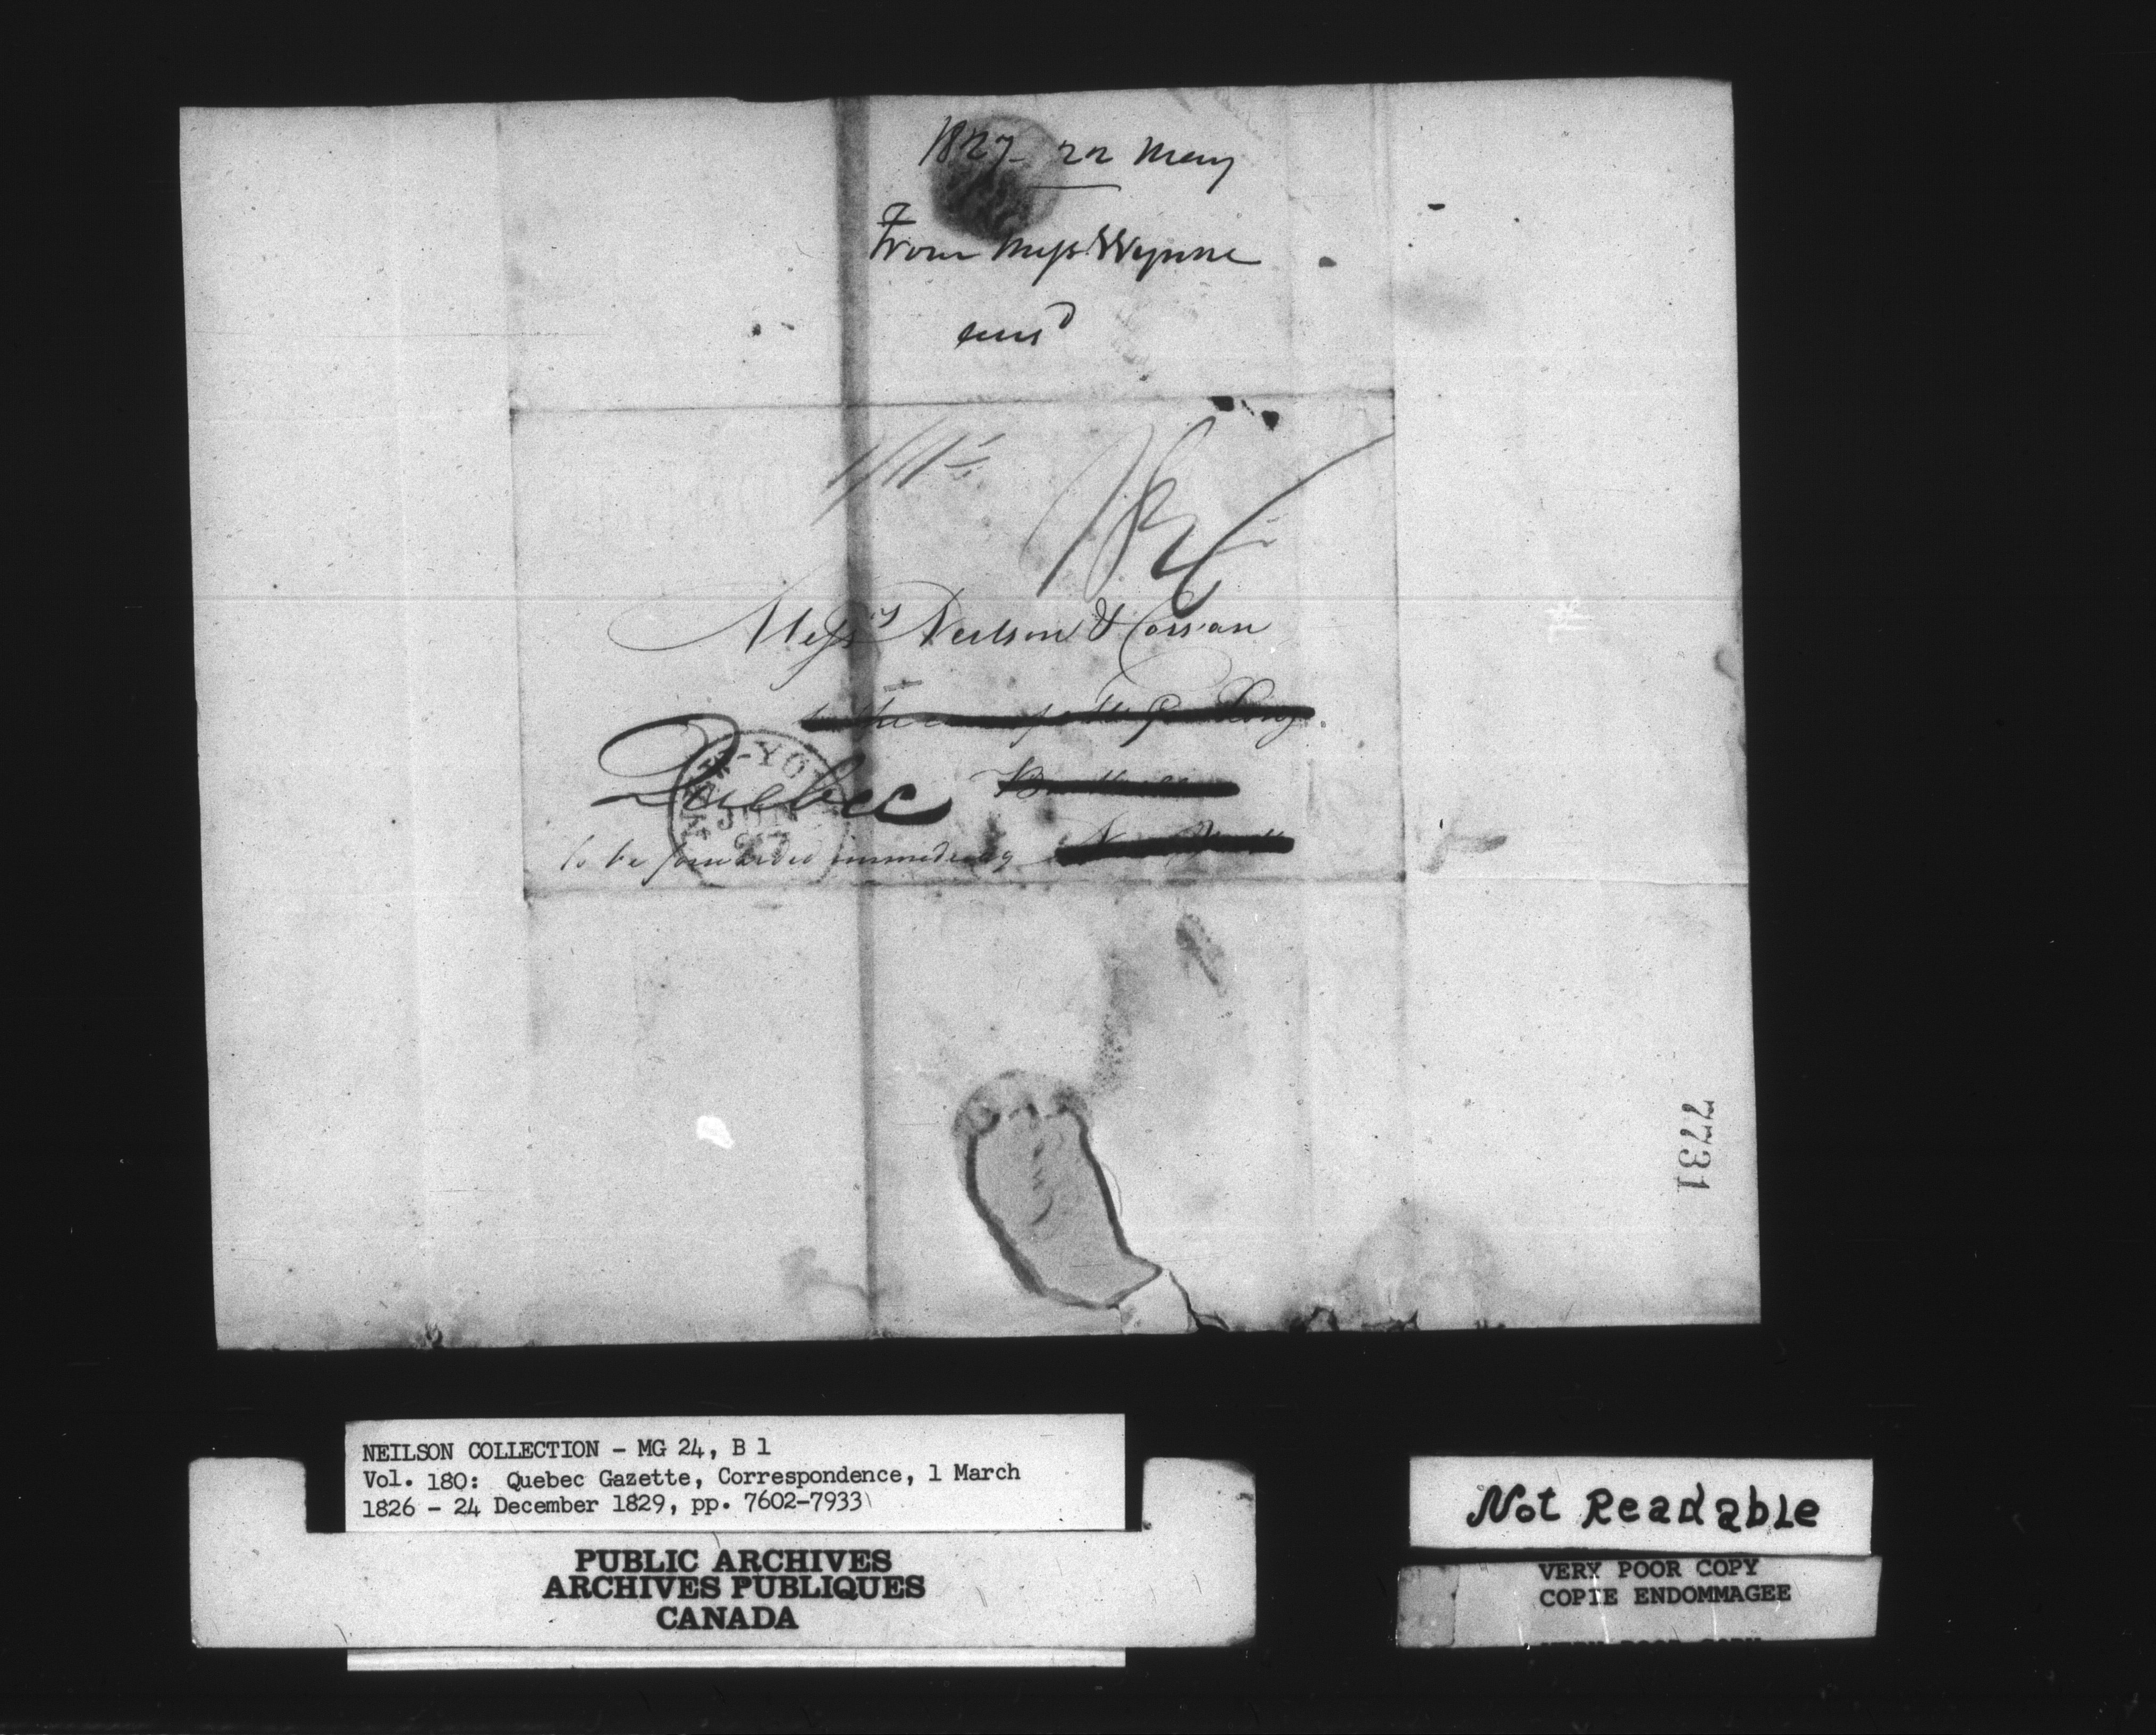 1827 - 22 May
From Miss Wynne
ans^d
Mess^rs Neilson & Cowan
Quebec
NEW-YORK
JUN
to be forwarded immediately
7731
NEILSON COLLECTION - MG 24, B 1
Vol. 180: Quebec Gazette, Correspondence, 1 March
1826 - 24 December 1829, pp. 7602-7933
PUBLIC ARCHIVES
ARCHIVES PUBLIQUES
CANADA
Not Readable
VERY POOR COPY
COPIE ENDOMMAGEE